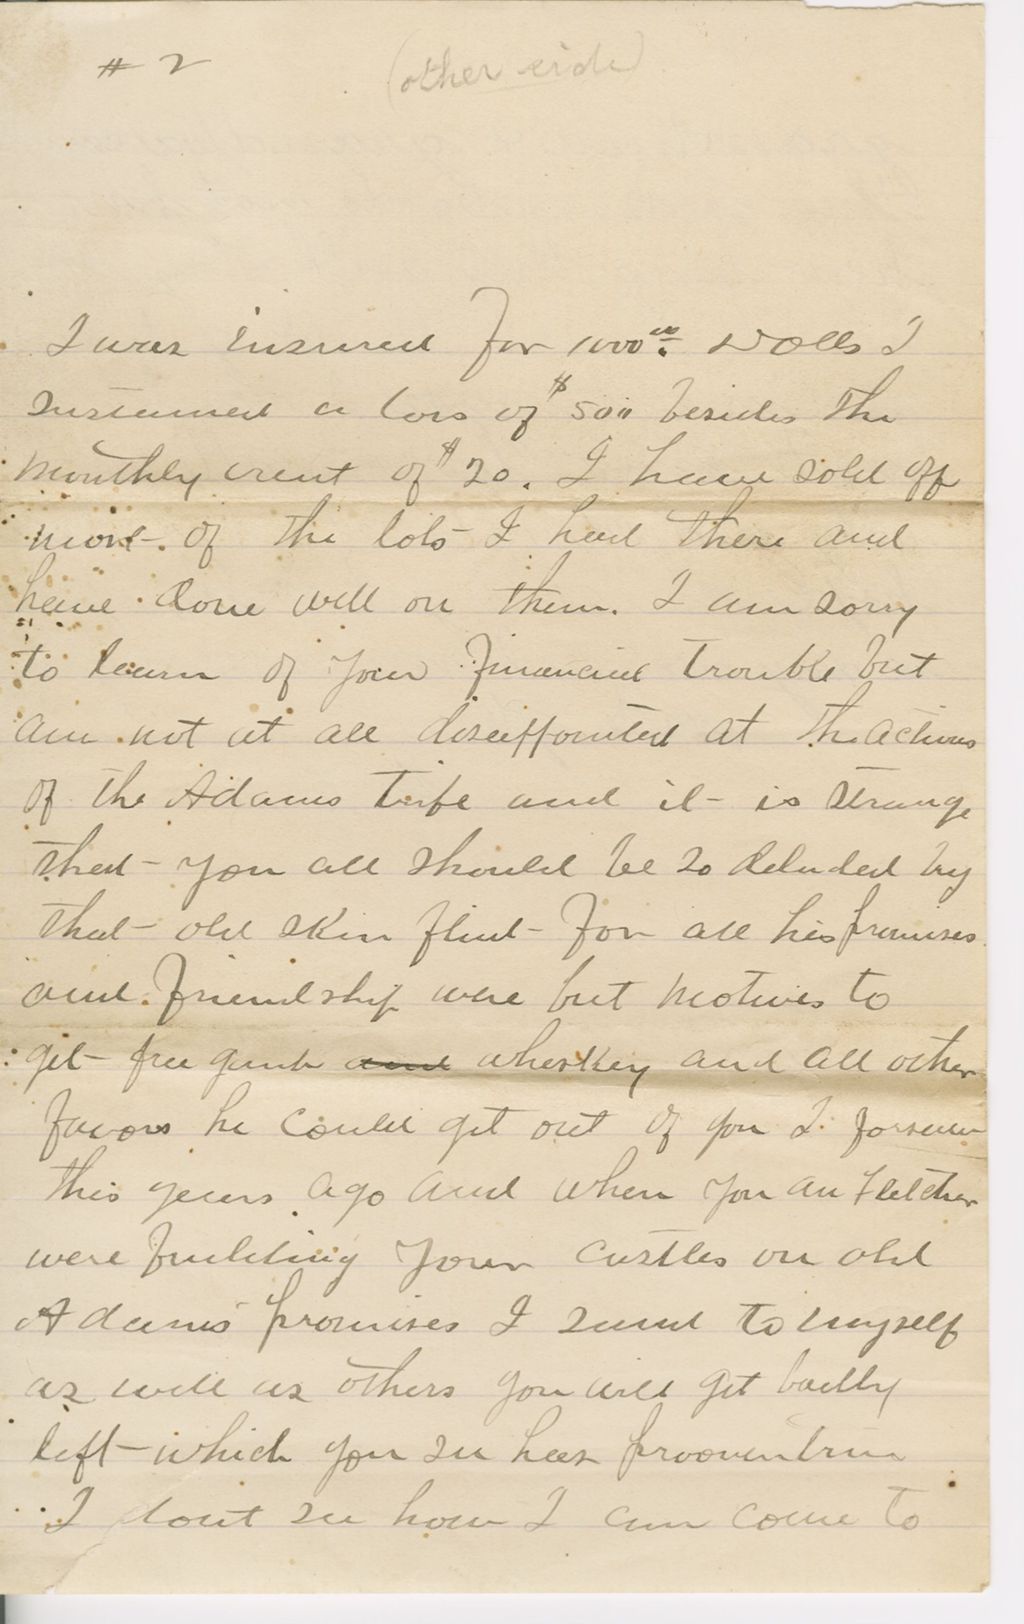 # 2
(other side)
I was insured for 1000.00 Dolls I
sustained a loss of $500 besides the
monthly rent of $20. I have sold off
most of the lots I had there and
have done well on them. I am sorry
to learn of your financial trouble but
am not at all disappointed at the actions
of the Adams tribe and it is strange
that you all should be so deluded by
that old skin flint for all his promises
and friendship were but motives to
get free whiskey and all other
favors he could get out of you I forseen
this years ago and when you an Fletcher
were building your castles on old
Adams promises I said to myself
as well as others you will get badly
left which you see has prooven true
I dont see how I can come to